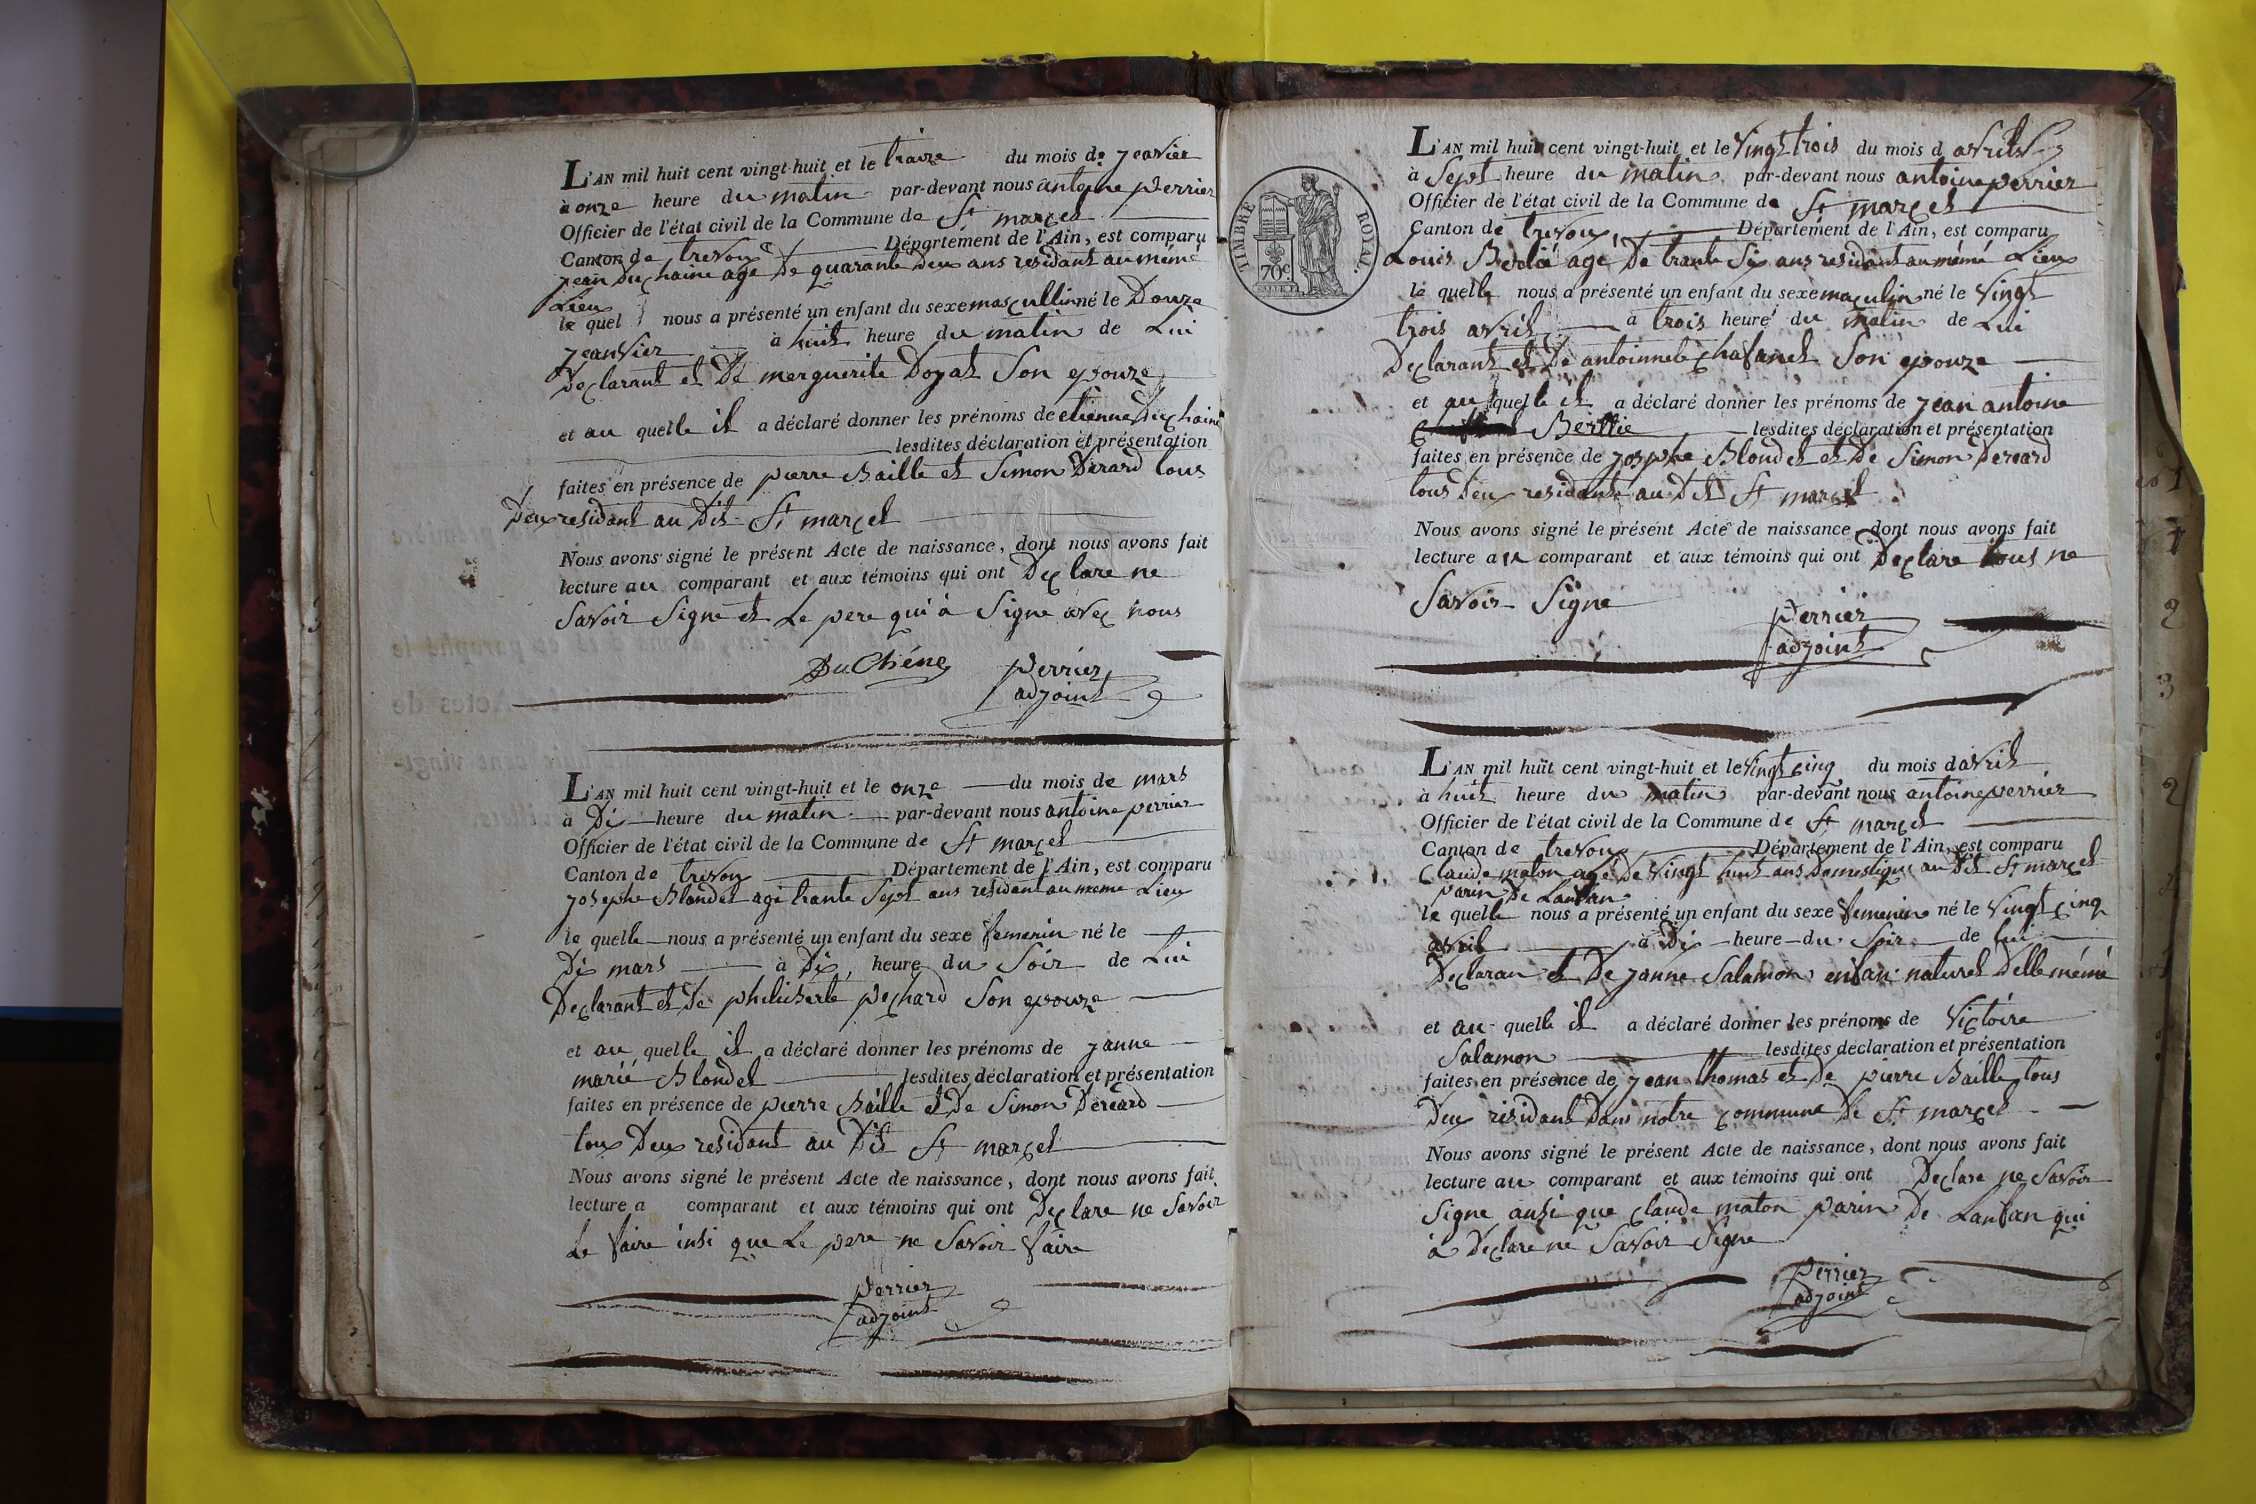 L'AN mil huit cent vingt-huit et le traize du mois de jeanvier
à onze heure du matin par-devant nous antoine perrier
Officier de l'état civil de la Commune de St marcel
Canton de trevoux Département de l'Ain, est comparu
jean duchaine age De quarante deux ans residant au mémé
Lieu
le quel nous a présenté un enfant du sexe mascullin né le Douze
jeanvier à huit heure du matin de Lui
Declarant et De merguerite Doyat Son epouze
et au quelle il a déclaré donner les prénoms de etienne Duchaine
lesdites déclaration et présentation
faites en présence de pierre Baille et Simon Derard tous
Deux residant au Dit St marcel
Nous avons signé le présent Acte de naissance, dont nous avons fait
lecture au comparant et aux témoins qui ont Declare ne
Savoir Signe et Le pere qui à Signe avec nous
DuChéne perrier
adjoint
L'AN mil huit cent vingt-huit et le onze du mois de mars
à Dix heure du matin par-devant nous antoine perrier
Officier de l'état civil de la Commune de St marcel
Canton de trevoux Département de l'Ain, est comparu
josephe Blondel agé trante Sept ans residant au meme Lieu
le quelle nous a présenté un enfant du sexe femenin né le
Dix mars à Dix heure du Soir de Lui
Declarant et De philiberte pechard Son epouze
et au quelle il a déclaré donner les prénoms de janne
marié Blondel lesdites déclaration et présentation
faites en présence de pierre Baille et De Simon Dereard
tous Deux residant au Dit St marcel
Nous avons signé le présent Acte de naissance, dont nous avons fait
lecture a comparant et aux témoins qui ont Declare ne Savoir
Le faire insi que Le pere ne Savoir faire
perrier
adjoint
TIMBRE ROYAL.
70c
L'AN mil huit cent vingt-huit et le vingt trois du mois d avrils
à Sept heure du matin par-devant nous antoine perrier
Officier de l'état civil de la Commune de St marcel
Canton de trevoux Département de l'Ain, est comparu
Louis agé De trante Six ans residant au mémé Lieu
le quelle nous a présenté un enfant du sexe maculin né le vingt
trois avril à trois heure du matin de Lui
Declarant et De antoinnete chafanel Son epouze
et au quelle il a déclaré donner les prénoms de jean antoine
Berthié lesdites déclaration et présentation
faites en présence de josphe Blondel et De Simon Dereard
tous deux residant au Dit St marcel
Nous avons signé le présent Acte de naissance dont nous avons fait
lecture au comparant et aux témoins qui ont Declare tous ne
Savoir Signe
perrier
adjoint
L'AN mil huit cent vingt-huit et le vingt cinq du mois d avril
à huit heure du matin par-devant nous antoine perrier
Officier de l'état civil de la Commune de St marcel
Canton de trevoux Département de l'Ain, est comparu
Claude maton agé De vingt huit ans Domestique au Dit St marcel
parin De Lanfan
le quelle nous a présenté un enfant du sexe femenin né le vingt cinq
avril à Dix heure du Soir de lui
Declaran et De janne Salamon enfan naturel Delle mémé
et au quelle il a déclaré donner les prénoms de Victoire
Salamon lesdites déclaration et présentation
faites en présence de jean thomas et De pierre Baille tous
Deux residant Dans notre commune De St marcel
Nous avons signé le présent Acte de naissance, dont nous avons fait
lecture au comparant et aux témoins qui ont Declare ne Savoir
Signe ausi que claude maton parin De Lanfan qui
à Declare ne Savoir Signe
perrier
adjoint